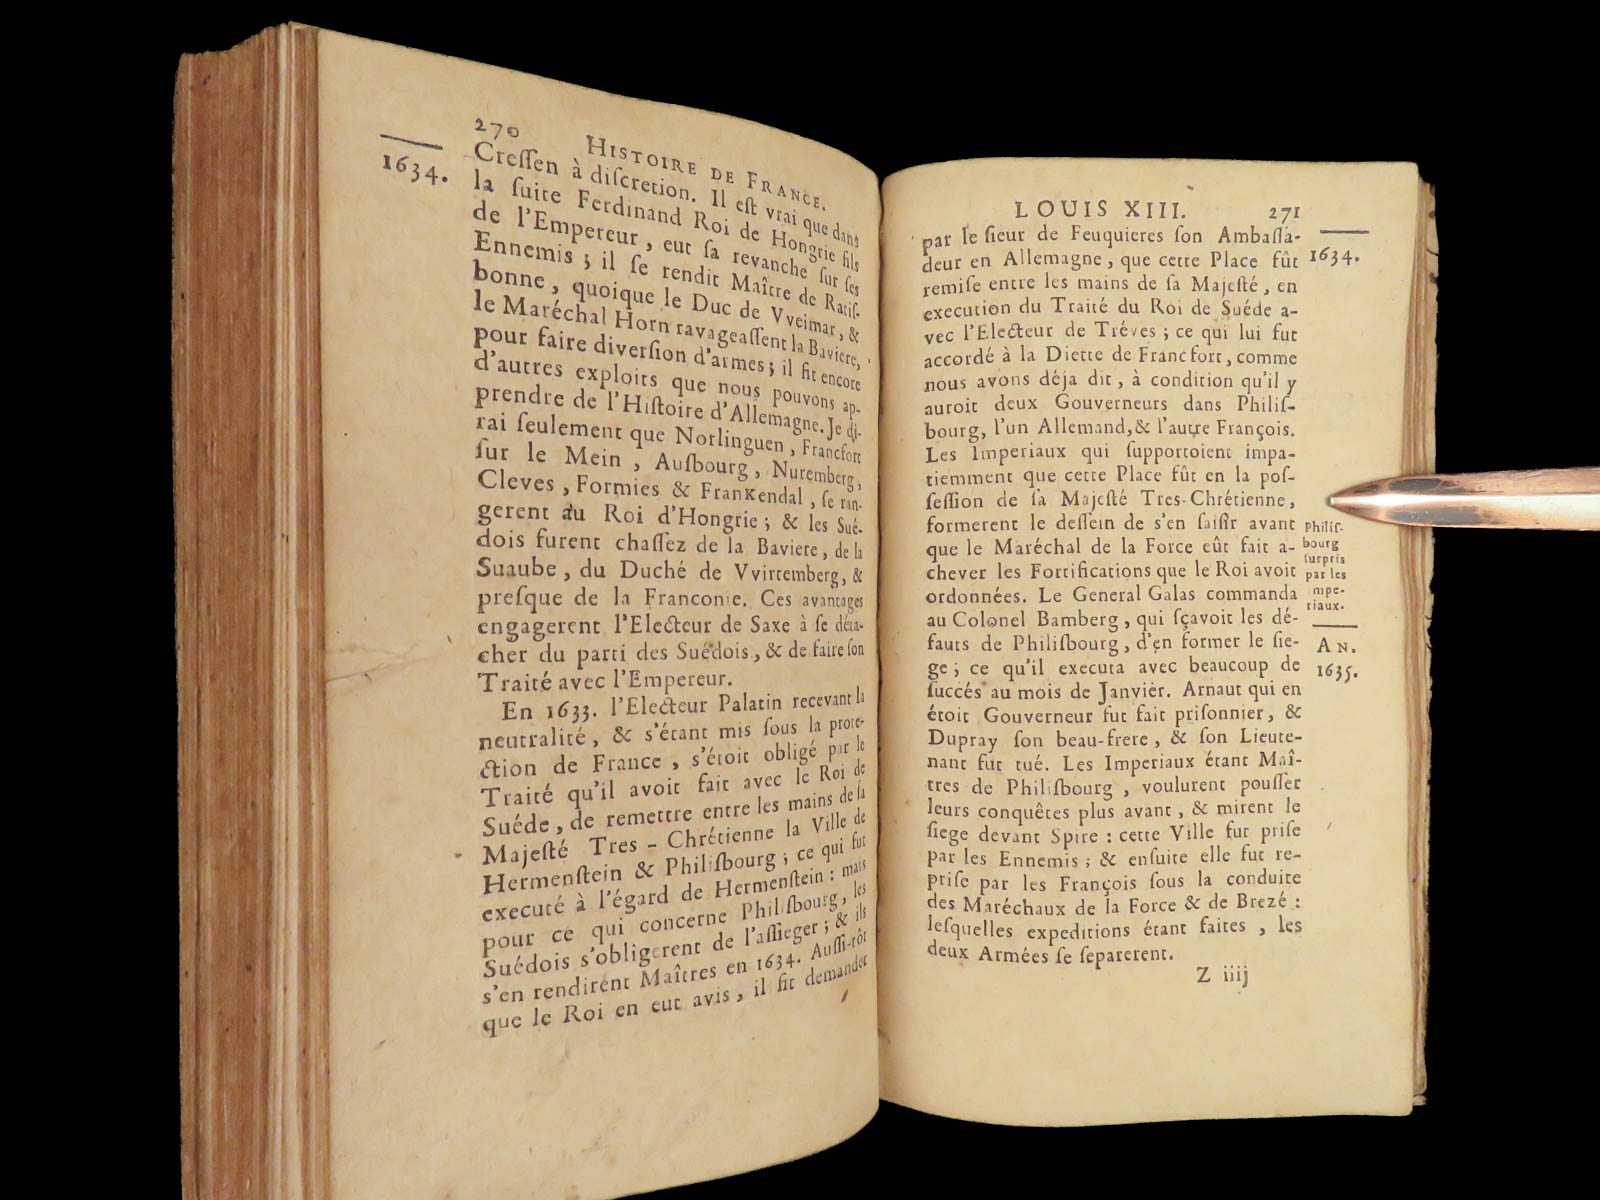 270 HISTOIRE DE FRANCE.
1634.
Creſſen à diſcretion. Il eſt vrai que dans
la ſuite Ferdinand Roi de Hongrie fils
de l'Empereur, eut ſa revanche ſur ſes
Ennemis; il ſe rendit Maître de Ratiſ-
bonne, quoique le Duc de Vveimar, &
le Maréchal Horn ravageaſſent la Baviere,
pour faire diverſion d'armes; il fit encore
d'autres exploits que nous pouvons ap-
prendre de l'Hiſtoire d'Allemagne. Je di-
rai ſeulement que Norlinguen, Francfort
ſur le Mein, Auſbourg, Nuremberg,
Cleves, Formies & Frankendal, ſe ran-
gerent au Roi d'Hongrie; & les Sué-
dois furent chaſſez de la Baviere, de la
Suaube, du Duché de Vvirtemberg, &
preſque de la Franconie. Ces avantages
engagerent l'Electeur de Saxe à ſe déta-
cher du parti des Suédois, & de faire ſon
Traité avec l'Empereur.
En 1633. l'Electeur Palatin recevant la
neutralité, & s'étant mis ſous la prote-
ction de France, s'étoit obligé par le
Traité qu'il avoit fait avec le Roi de
Suéde, de remettre entre les mains de ſa
Majeſté Tres-Chrétienne la Ville de
Hermenſtein & Philiſbourg; ce qui fut
executé à l'égard de Hermenſtein: mais
pour ce qui concerne Philiſbourg, les
Suédois s'obligerent de l'aſſieger; & ils
s'en rendirent Maîtres en 1634. Auſſi-tôt
que le Roi en eut avis, il fit demander
LOUIS XIII. 271
par le ſieur de Feuquieres ſon Ambaſſa-
deur en Allemagne, que cette Place fût
1634.
remiſe entre les mains de ſa Majeſté, en
execution du Traité du Roi de Suéde a-
vec l'Electeur de Tréves; ce qui lui fut
accordé à la Diette de Francfort, comme
nous avons déja dit, à condition qu'il y
auroit deux Gouverneurs dans Philiſ-
bourg, l'un Allemand, & l'autre François.
Les Imperiaux qui ſupportoient impa-
tiemment que cette Place fût en la poſ-
ſeſſion de ſa Majeſté Tres-Chrétienne,
formerent le deſſein de s'en ſaiſir avant
que le Maréchal de la Force eût fait a-
chever les Fortifications que le Roi avoit
ordonnées. Le General Galas commanda
au Colonel Bamberg, qui ſçavoit les dé-
fauts de Philiſbourg, d'en former le ſie-
ge; ce qu'il executa avec beaucoup de
ſuccés au mois de Janvier. Arnaut qui en
étoit Gouverneur fut fait priſonnier, &
Dupray ſon beau-frere, & ſon Lieute-
nant fut tué. Les Imperiaux étant Maî-
tres de Philiſbourg, voulurent pouſſer
leurs conquêtes plus avant, & mirent le
ſiege devant Spire: cette Ville fut priſe
par les Ennemis; & enſuite elle fut re-
priſe par les François ſous la conduite
des Maréchaux de la Force & de Brezé:
leſquelles expeditions étant faites, les
deux Armées ſe ſeparerent.
Philiſ-
bourg
ſurpris
par les
Impe-
riaux.
AN.
1635.
Z iiij